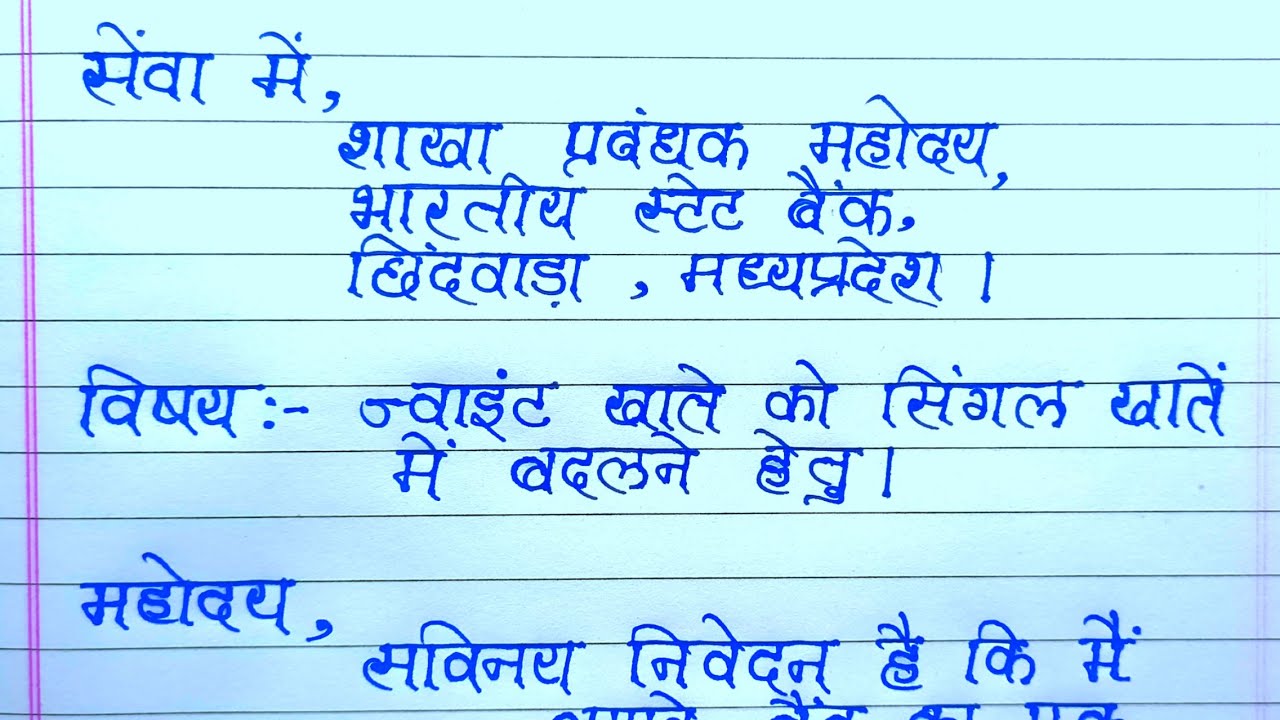 सेंवा में,
शाखा प्रबंधक महोदय,
भारतीय स्टेट बैंक,
छिंदवाड़ा , मध्यप्रदेश ।
विषय :- ज्वाइंट खाते को सिंगल खातें
में बदलने हेतु ।
महोदय,
सविनय निवेदन है कि मैं